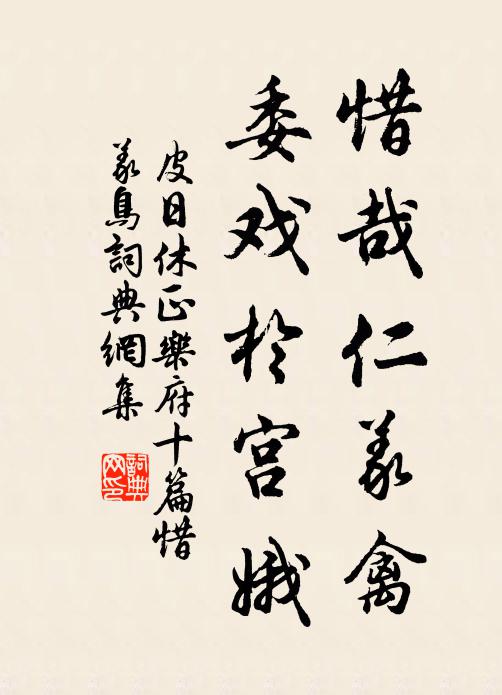 惜哉仁义禽
委戏於宫娥
皮日休正樂府十篇惜
义鳥詞典網集
詞典网印